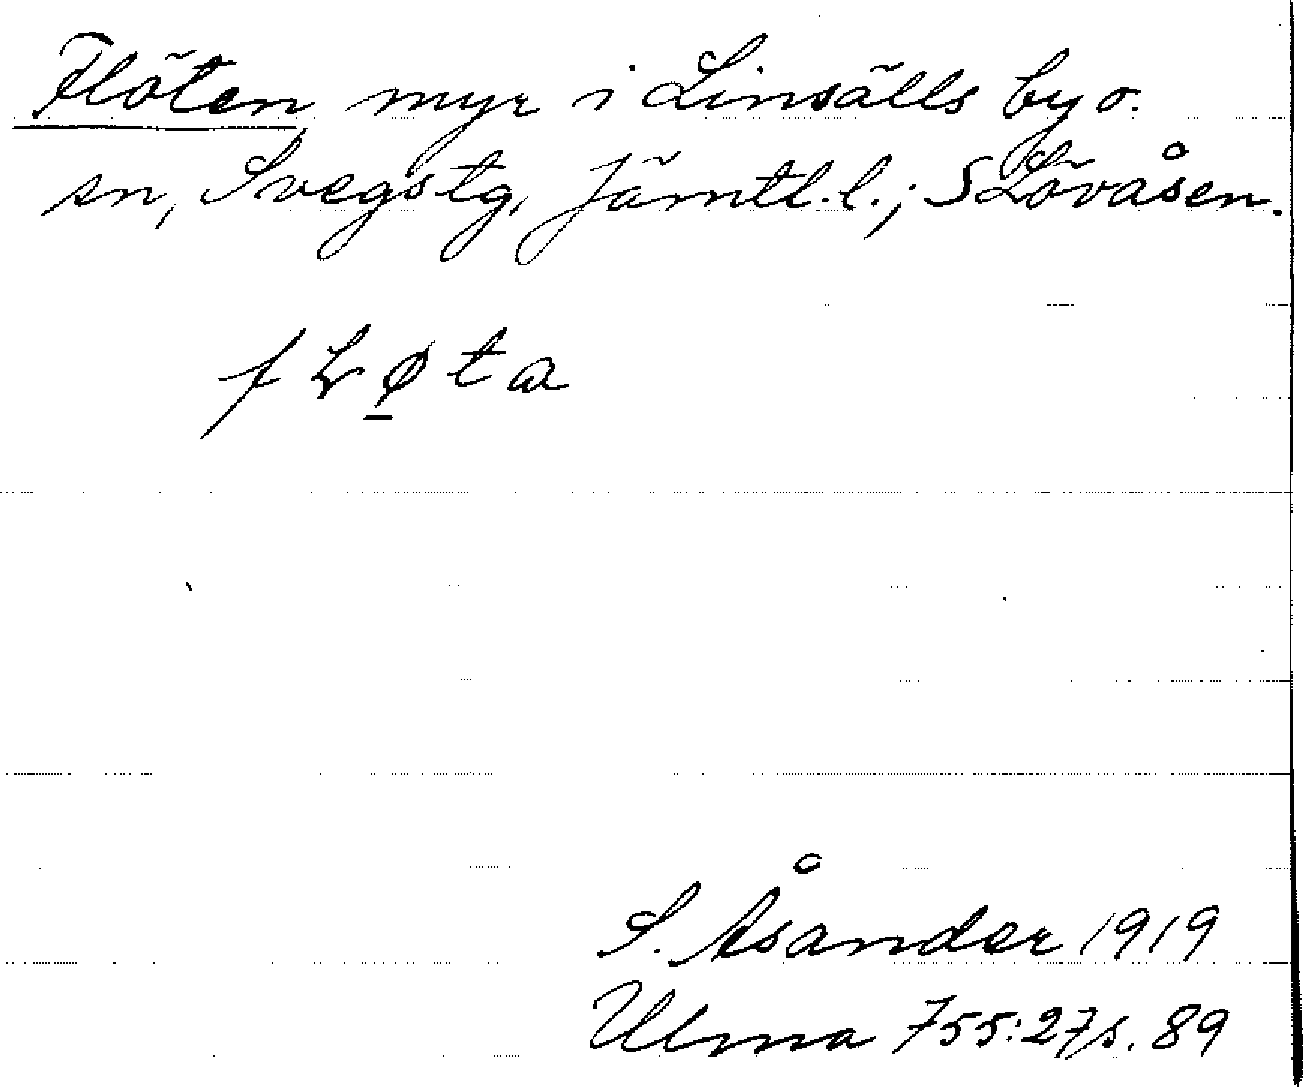 Flöten myr i Linsälls by o.
sn, Svegs tg, Jämtl. l.; S Lövåsen.
f L ø t a
S. Åsander 1919
Ulma 755:27 s. 89